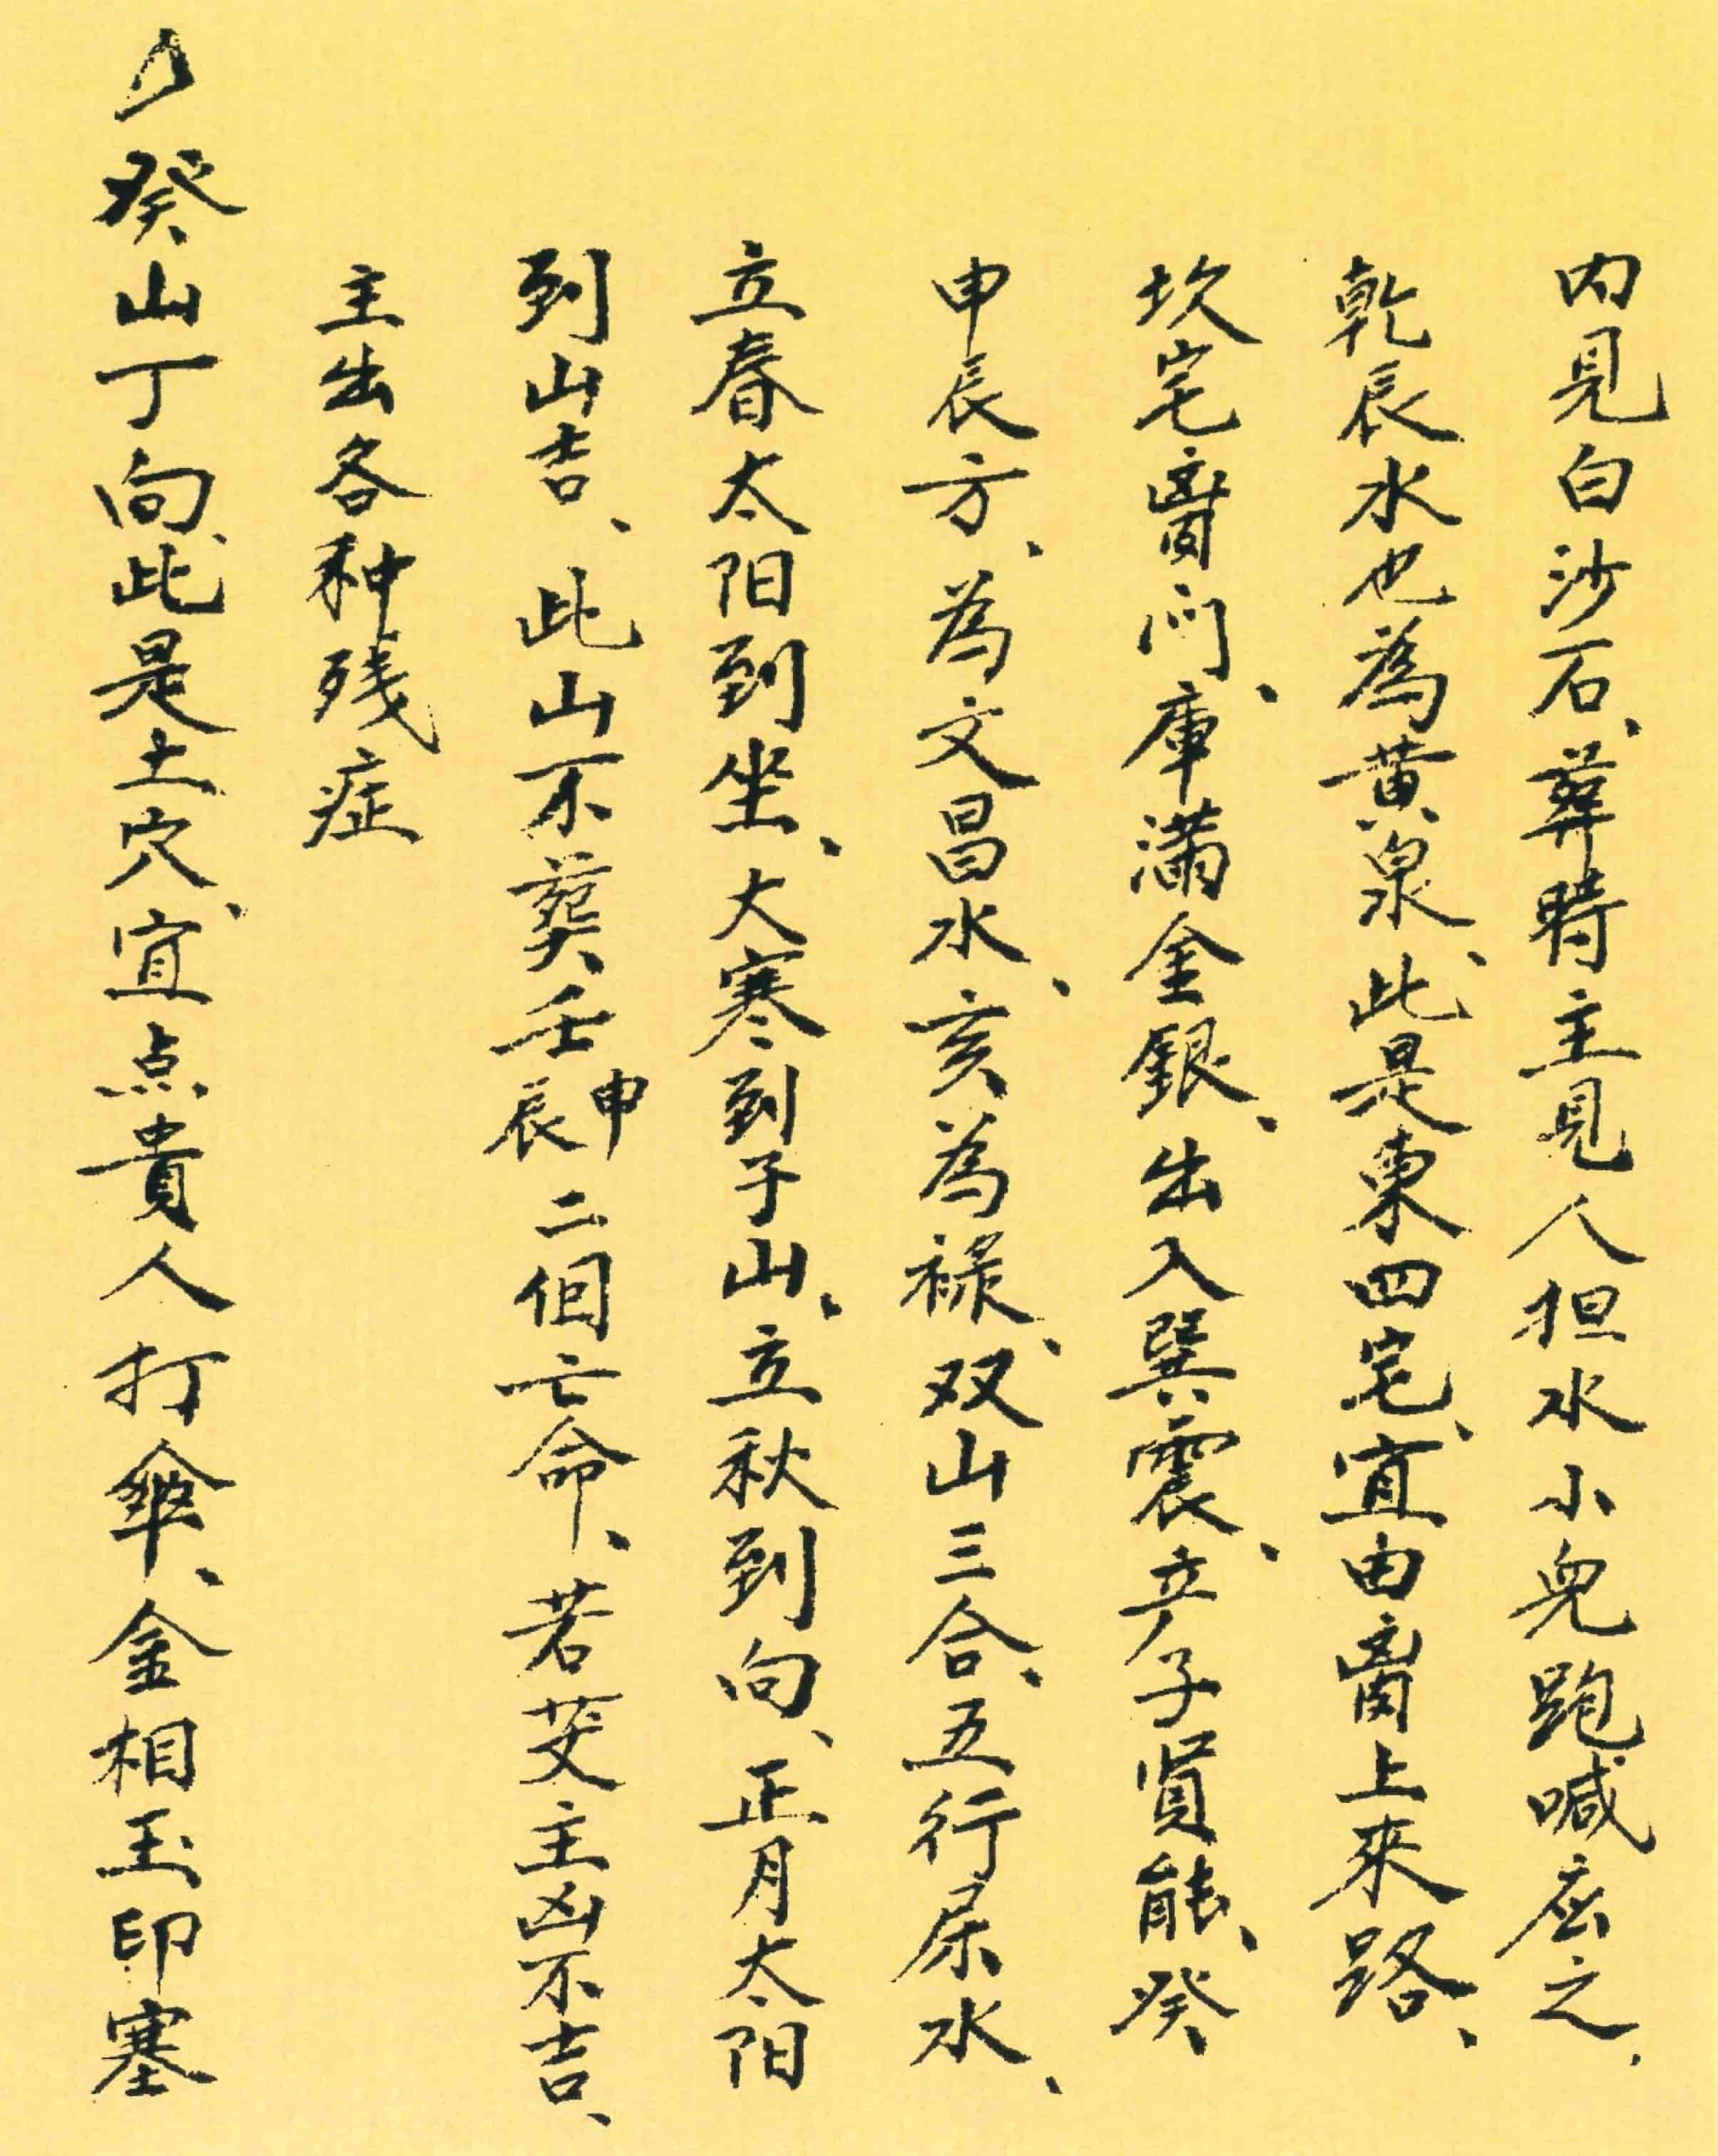 内見白沙石、葬時主見人担水小兒跑喊应之、
乾辰水也為黄泉、此是東四宅、宜由离上來路、
坎宅离门、庫滿金銀、出入巽震、产子賢能、癸
申辰方、為文昌水、亥為禄、双山三合、五行屎水、
立春太阳到坐、大寒到子山、立秋到向、正月太阳
到山吉、此山不葬壬申辰二個亡命、若 主凶不吉、
主出各种残症
癸山丁向、此是土穴、宜点貴人打傘、金相玉印塞